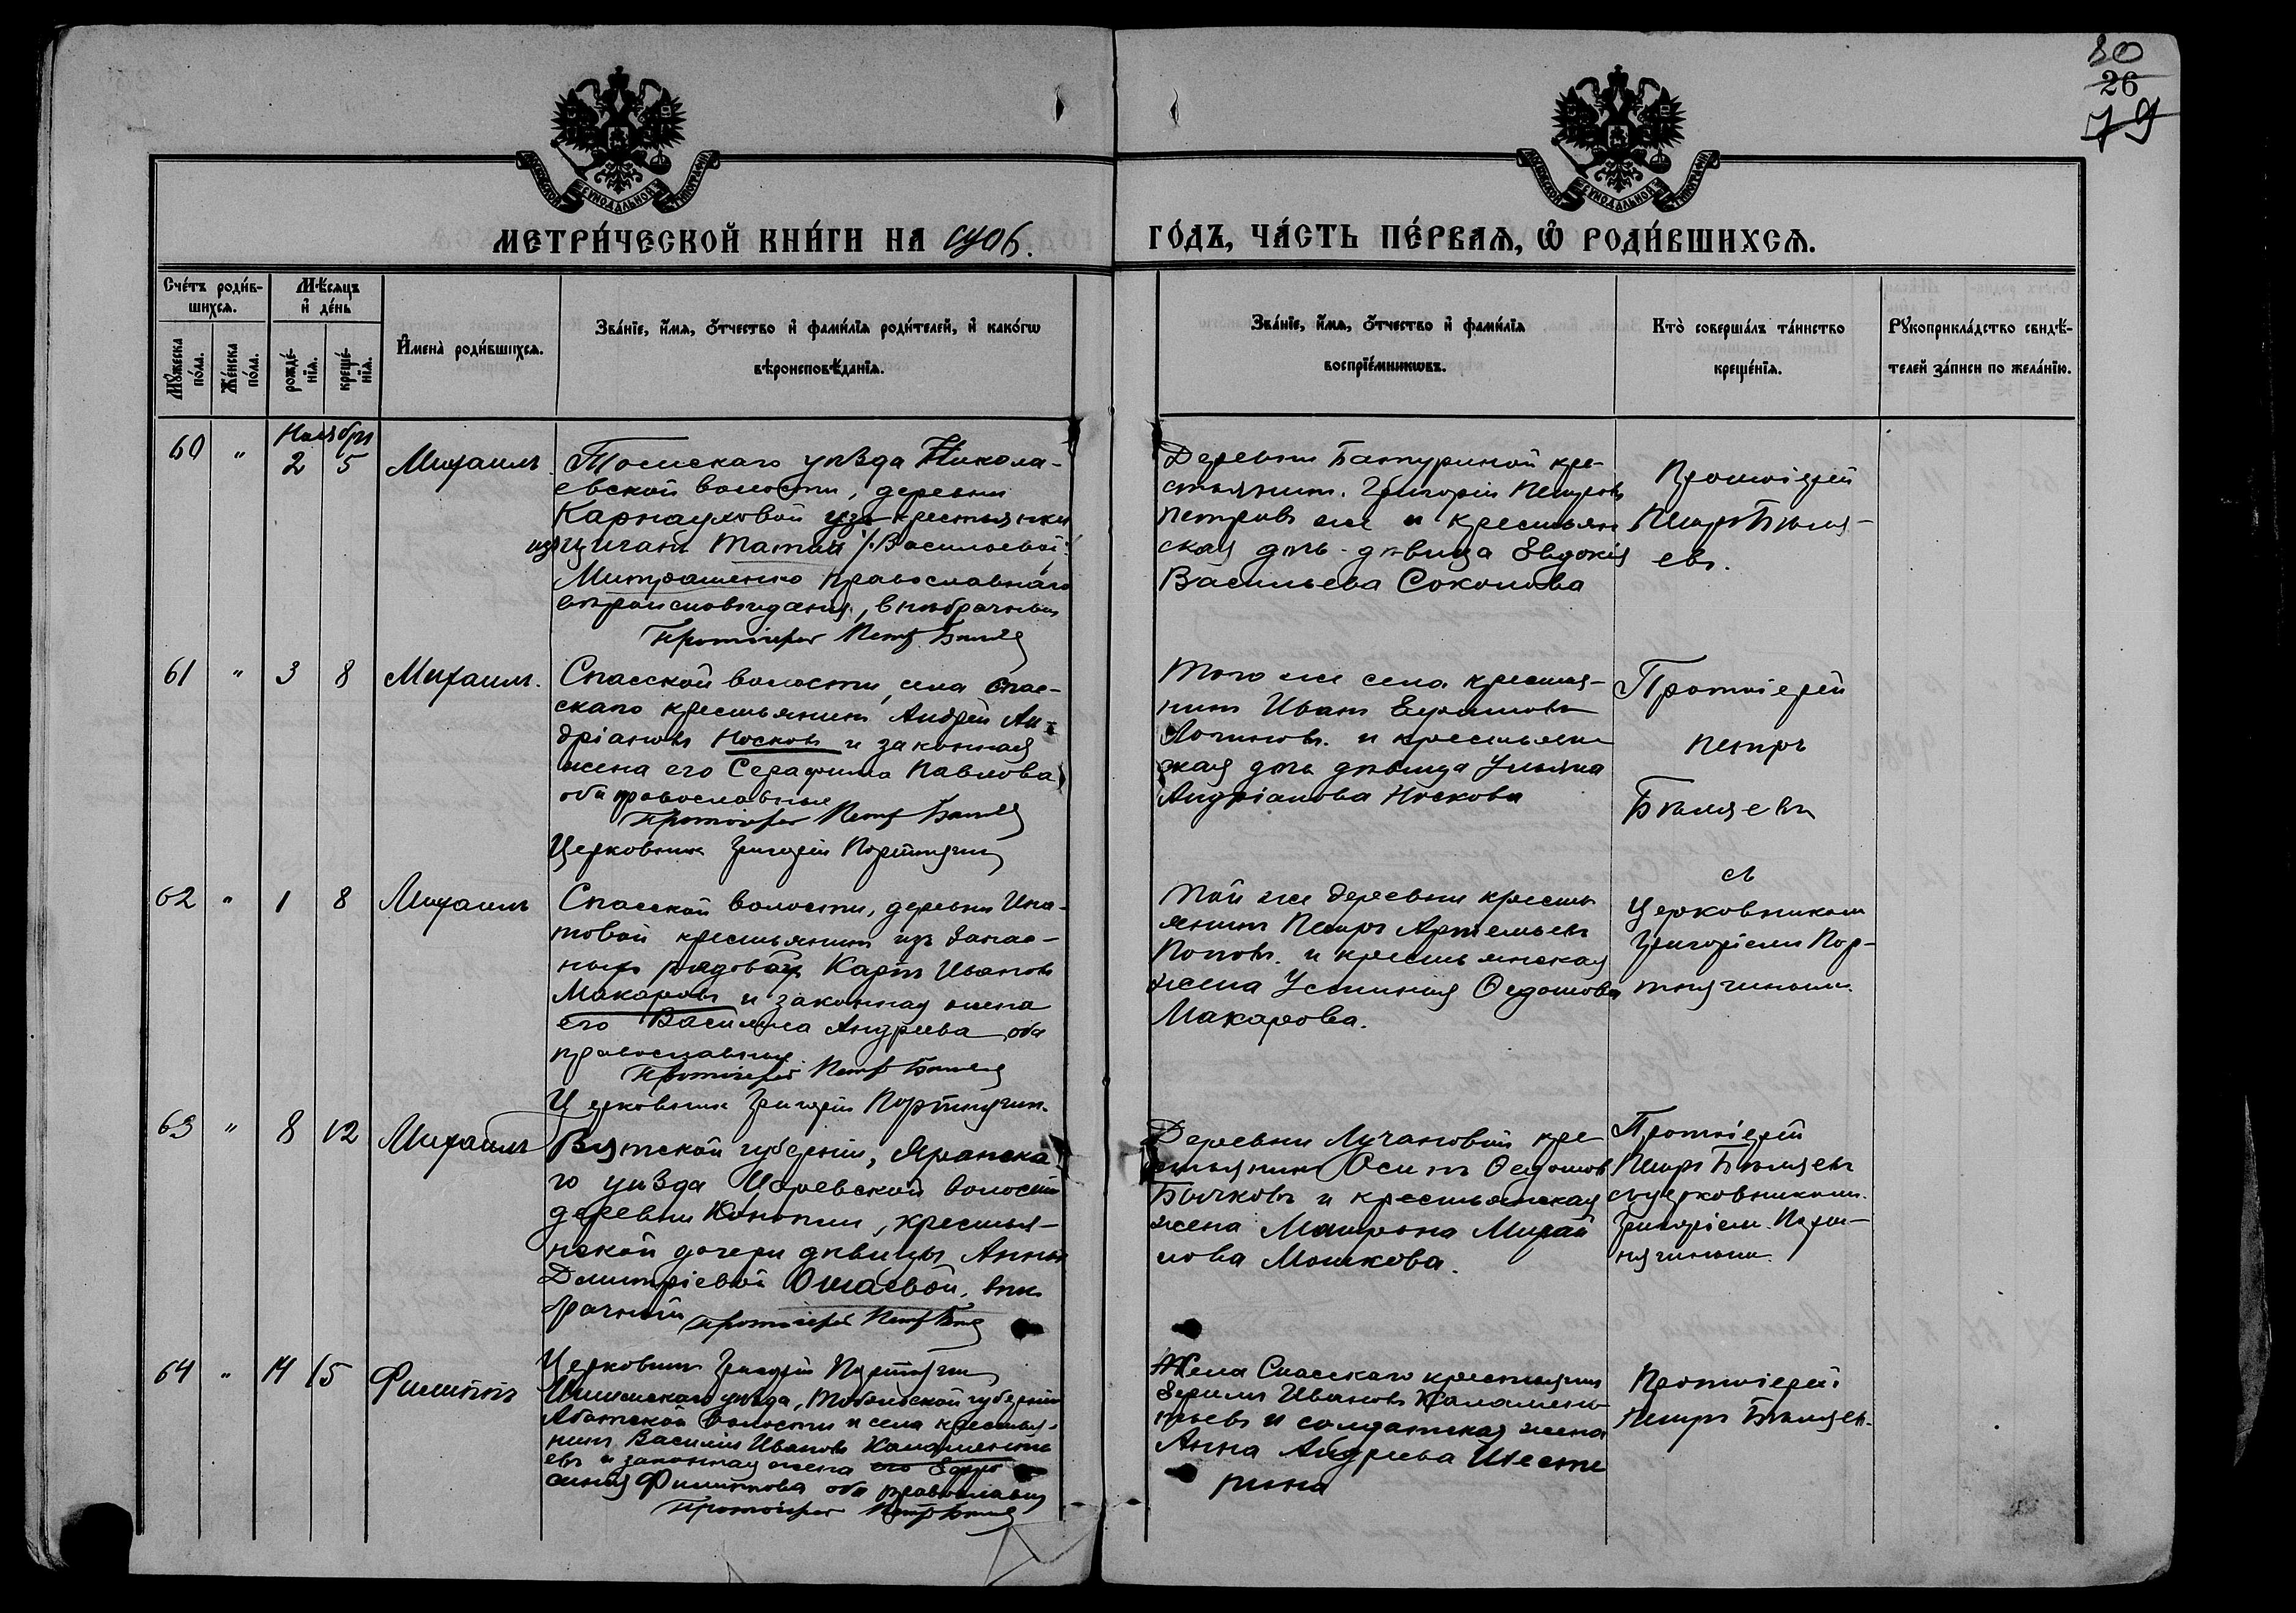 80
26
79
МОСКОВСКОЙ СѴНОДАЛЬНОЙ ТИПОГРАФІИ
МОСКОВСКОЙ СѴНОДАЛЬНОЙ ТИПОГРАФІИ
МЕТРИ́ЧЕСКОЙ КНИ́ГИ НА 1906.
ГО́ДЪ, ЧА́СТЬ ПЕ́РВАѦ, Ѡ҆ РОДИ́ВШИХСѦ.
Сче́тъ роди́в-
шихсѧ.
Мꙋ́жеска по́ла.
Же́нска по́ла.
Мѣ́сѧцъ
и҆ де́нь
рожде́-
нїѧ.
креще́-
нїѧ.
И҆мена̀ роди́вшихсѧ.
Зва́нїе, и҆́мѧ, ѻ҆́тчество и҆ фами́лїѧ роди́телей, и҆ како́гѡ
вѣроисповѣ́данїѧ.
Зва́нїе, и҆́мѧ, ѻ҆́тчество и҆ фами́лїѧ
воспрїе́мникѡвъ.
Кто̀ соверша́лъ та́инство
креще́нїѧ.
Рꙋкоприкла́дство свидѣ́-
телей за́писи по жела́нїю.
Ноября
60 " 2 5 Михаилъ
Томскаго уѣзда Никола-
евской волости, деревни
Карнауховой крестьянки
изъ цыганъ Васильевой
Митрашенко православнаго
вѣроисповѣданія, внѣбрачный
Протоіерей Петръ Бѣляев
Деревни Батуриной кре-
стьянинъ Григорій Петровъ
Петровъ же и крестьян
ская дочь дѣвица Евдокія
Васильева Соколова
Протоіерей
Петръ Бѣля-
евъ.
61 " 3 8 Михаилъ.
Спасской волости, села Спас-
скаго крестьянинъ Андрей Ан-
дріановъ Носковъ и законная
жена его Серафима Павлова
оба православные
Протоіерей Петръ Бѣляев
Церковникъ Григорій Портнягин
Того же села крестья-
нинъ Иванъ
Логиновъ и крестьян
ская дочь дѣвица Ульяна
Андріанова Носкова
Протоіерей
Петръ
Бѣляевъ
62 " 1 8 Михаилъ
Спасской волости, деревни Ипа-
товой крестьянинъ изъ запас-
ныхъ рядовой Карпъ Ивановъ
Макаровъ и законная жена
его Василиса Андреева оба
православные
Протоіерей Петръ Бѣляев
Церковникъ Григорій Портнягин.
Той же деревни кресть
янинъ Петръ Артемьевъ
Поповъ и крестьянская
жена Устинія Ѳедотова
Макарова.
съ
Церковникомъ
Григоріемъ Пор-
тнягинымъ
63 " 8 12 Михаилъ
Вятской губерніи, Яранска
го уѣзда волости
деревни крестья-
нской дочери дѣвицы Анны
Димитріевой Ошаевой, внѣ
брачный Протоіерей Петръ Бѣляев
Церковникъ Григорій Портнягин
Деревни Лучановой кре
стьянинъ Осипъ Ѳедотов
Бычковъ и крестьянская
жена Матрона Михай
лова Мошкова.
Протоіерей
Петръ Бѣляевъ
съ церковникомъ
Григоріемъ Порт-
нягинымъ
64 " 14 15 Филиппъ
Ишимскаго уѣзда, Тобольской губерніи
Абатской волости и села крестья-
нинъ Василій Ивановъ Каламенть
евъ и законная жена его Евфро
синія Филиппова оба православные
Протоіерей Петръ Бѣляев
Села Спасскаго крестьянин
Ивановъ Каламен
тьевъ и солдатская жена
Анна Андреева Шесте
рина
Протоіерей
Петръ Бѣляев.